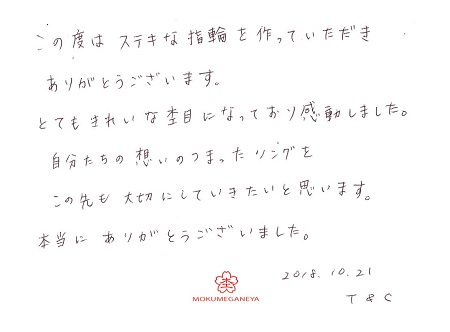 この度は ステキな指輪を作っていただき
ありがとうございます。
とてもきれいな杢目になっており感動しました。
自分たちの想いのつまったリングを
この先も大切にしていきたいと思います。
本当にありがとうございました。
杢
MOKUMEGANEYA
2018.10.21
T & C